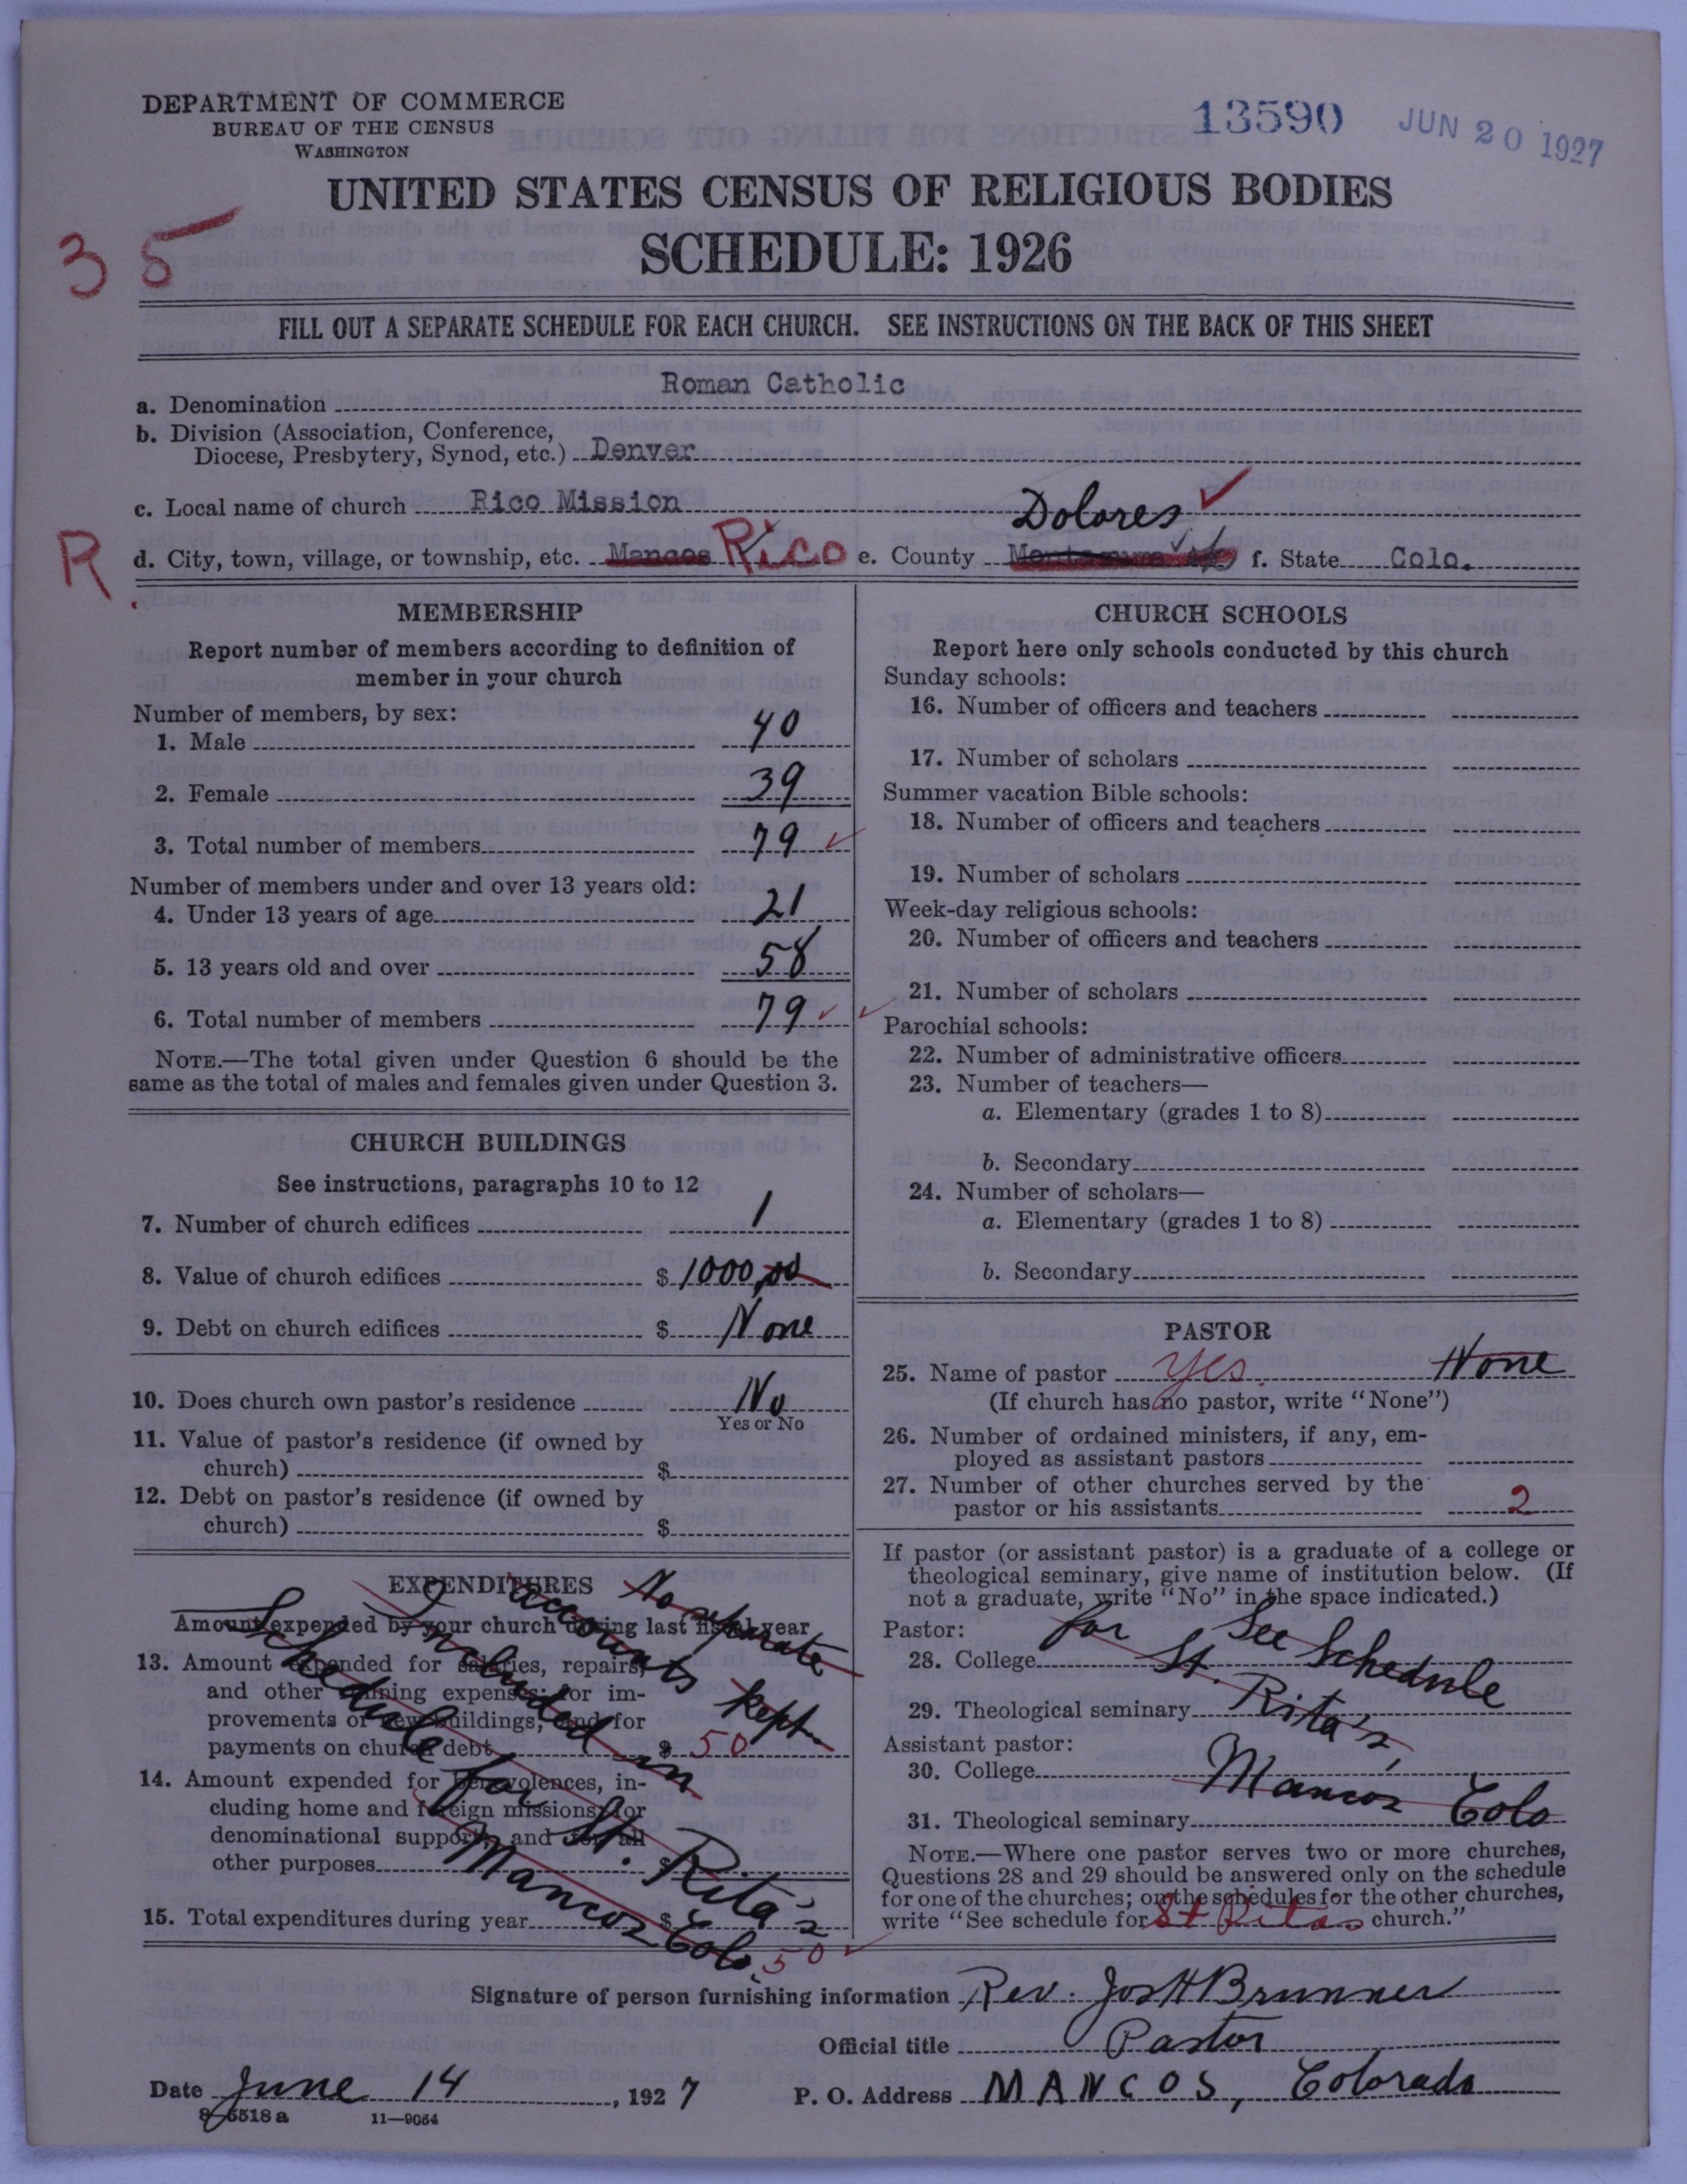 DEPARTMENT OF COMMERCE
BUREAU OF THE CENSUS
WASHINGTON
13590 JUN 20 1927
UNITED STATES CENSUS OF RELIGIOUS BODIES
SCHEDULE: 1926
35
FILL OUT A SEPARATE SCHEDULE FOR EACH CHURCH. SEE INSTRUCTIONS ON THE BACK OF THIS SHEET
a. Denomination Roman Catholic
b. Division (Association, Conference,
Diocese, Presbytery, Synod, etc.) Denver
c. Local name of church Rico Mission
Dolores ✓
R
d. City, town, village, or township, etc. Mancos Rico e. County Montezuma f. State Colo.
MEMBERSHIP
Report number of members according to definition of
member in your church
Number of members, by sex:
1. Male 40
2. Female 39
3. Total number of members 79 ✓
Number of members under and over 13 years old:
4. Under 13 years of age 21
5. 13 years old and over 58
6. Total number of members 79 ✓ ✓
NOTE.—The total given under Question 6 should be the
same as the total of males and females given under Question 3.
CHURCH BUILDINGS
See instructions, paragraphs 10 to 12
7. Number of church edifices 1
8. Value of church edifices $ 1000,00
9. Debt on church edifices $ None
10. Does church own pastor's residence No
Yes or No
11. Value of pastor's residence (if owned by
church) $
12. Debt on pastor's residence (if owned by
church) $
EXPENDITURES
Amount expended by your church during last fiscal year
13. Amount expended for salaries, repairs,
and other running expenses; for im-
provements or new buildings; and for
payments on church debt $ 50
14. Amount expended for benevolences, in-
cluding home and foreign missions; for
denominational support; and for all
other purposes $
15. Total expenditures during year $ 50 ✓
No separate
accounts kept.
Included in
Schedule for St. Rita's
Mancos Colo.
CHURCH SCHOOLS
Report here only schools conducted by this church
Sunday schools:
16. Number of officers and teachers
17. Number of scholars
Summer vacation Bible schools:
18. Number of officers and teachers
19. Number of scholars
Week-day religious schools:
20. Number of officers and teachers
21. Number of scholars
Parochial schools:
22. Number of administrative officers
23. Number of teachers—
a. Elementary (grades 1 to 8)
b. Secondary
24. Number of scholars—
a. Elementary (grades 1 to 8)
b. Secondary
PASTOR
25. Name of pastor Yes. None
(If church has no pastor, write "None")
26. Number of ordained ministers, if any, em-
ployed as assistant pastors
27. Number of other churches served by the
pastor or his assistants 2
If pastor (or assistant pastor) is a graduate of a college or
theological seminary, give name of institution below. (If
not a graduate, write "No" in the space indicated.)
Pastor:
28. College
29. Theological seminary
Assistant pastor:
30. College
31. Theological seminary
See Schedule
for St. Rita's,
Mancos Colo
NOTE.—Where one pastor serves two or more churches,
Questions 28 and 29 should be answered only on the schedule
for one of the churches; on the schedules for the other churches,
write "See schedule for St Ritas church."
Signature of person furnishing information Rev. Jos H Brunner
Official title Pastor
Date June 14, 1927 P. O. Address MANCOS, Colorado
8-5518 a 11—9054